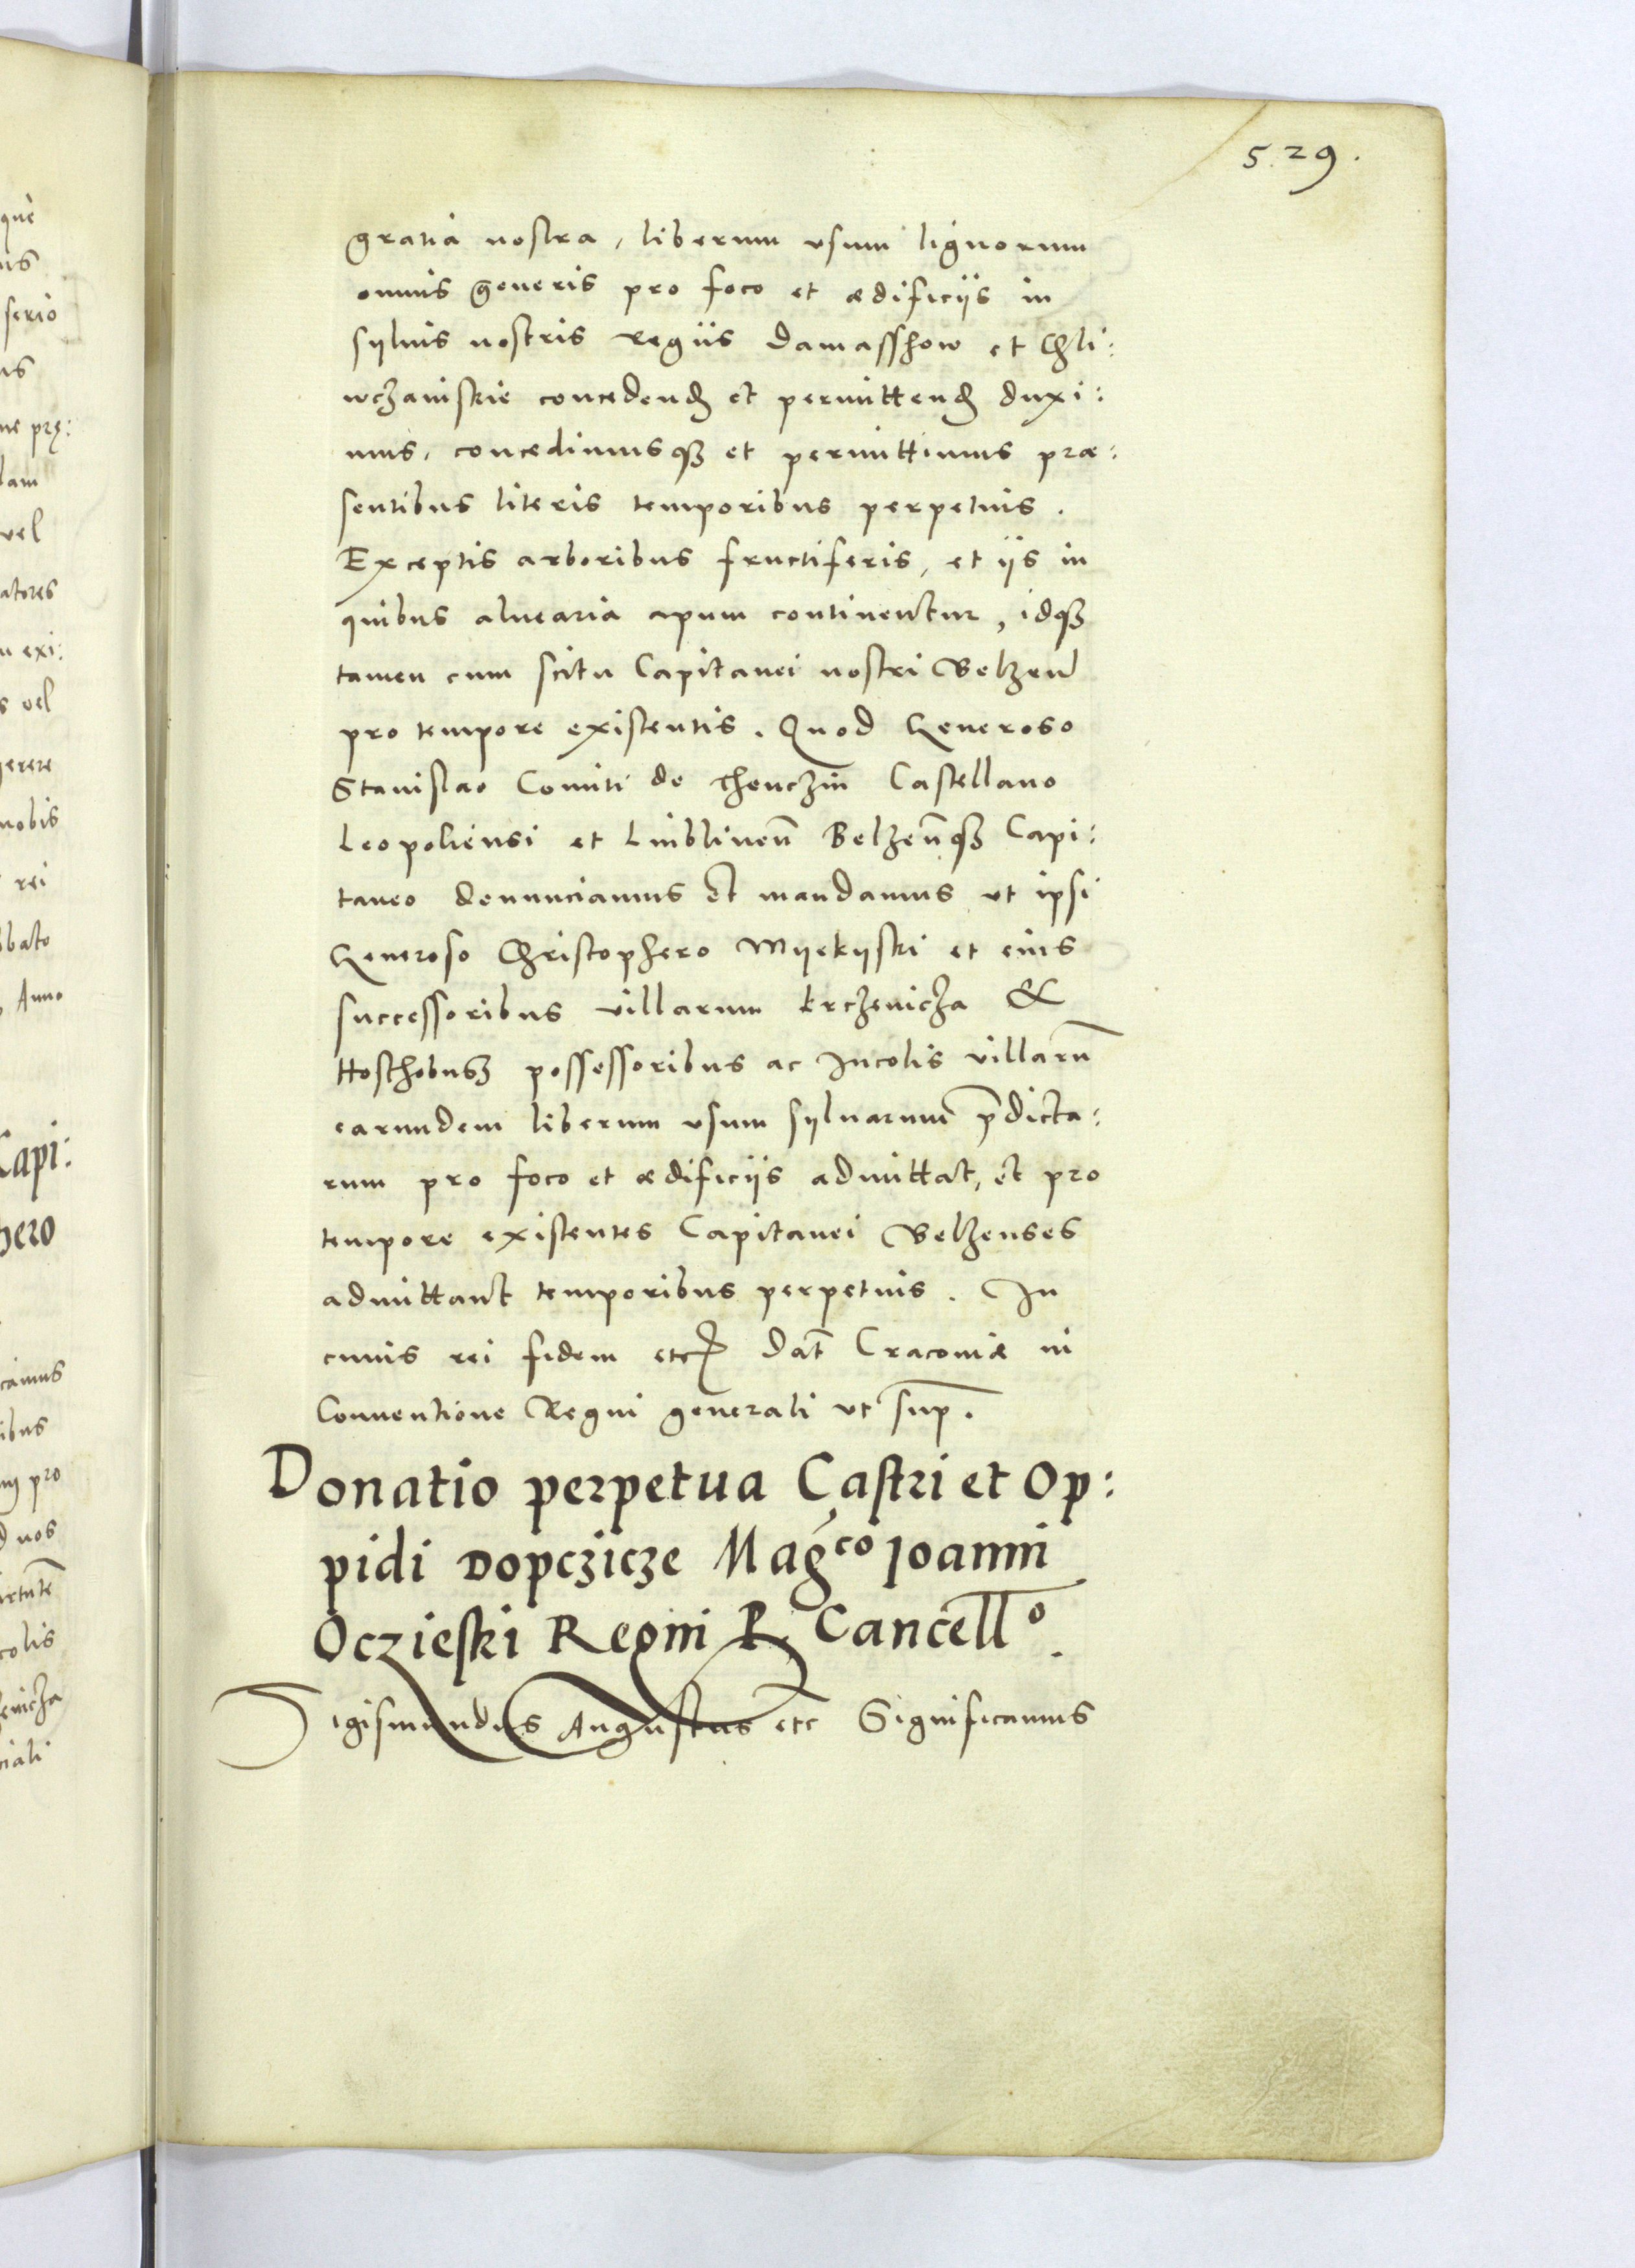 5.29.
gratia nostra, liberum vsum lignorum
omnis generis pro foco et ædificijs in
syluis nostris Regiis Damasshow et Chli:
wczaniskie concedend et permittend duxi:
mus, concedimusq3 et permittimus præ:
sentibus literis temporibus perpetuis.
Exceptis arboribus fructiferis, et ijs in
quibus aluearia apum continentur, idq3
tamen cum scitu Capitanei nostri Belzen
pro tempore existentis. Quod Generoso
Stanislao Comiti de Thenczin Castellano
Leopoliensi et Lublinen̄ Belzen̄q3 Capi:
taneo denunciamus et mandamus vt ipsi
Generoso Christophero Myekyski et eius
successoribus villarum krczewicza &
Hosthobusz possessoribus ac Incolis villarū
earumdem liberum vsum syluarum p̄dicta:
rum pro foco et ædificijs admittat, et pro
tempore existentes Capitanei Belzenses
admittant temporibus perpetuis. In
cuius rei fidem etc Dat̄ Cracouiæ in
Conuentione Regni generali vt sup̄.
Donatio perpetua Castri et Op:
pidi Dopczicze Mag.co Joanni
Oczieski Regni P. Cancell̄o.
Sigismundus Augustus etc Significamus
que
us
serio
us
ne prę:
lam
vel
atores
u exi:
s vel
gerere
nobis
rei
bato
Anno
Capi:
hero
camus
ibus
m pro
d nos
colis
ewicza
ciali